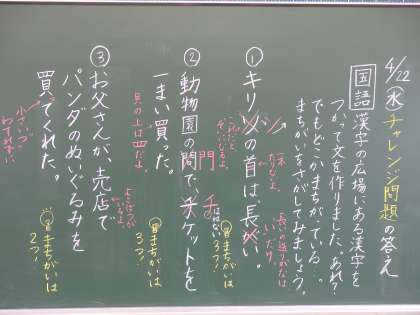 4/22(水)チャレンジ問題の答え
国語 漢字の広場にある漢字を
つかって文を作りました。あれ?
でもどこかまちがっている…。
まちがいさがしてみましょう。
①キリンの首は、長がい。
長いの送りがなは
いだけ。
まちがいは
3つ!
②動物園の問で、チケットを
門
チ
はねない
一まい買った。
貝の上は四だよ。
まちがいは
3つ!
③お父さんが、売店で
パンダのぬいぐるみを
買てくれた。
小さいつ
わすれずに
まちがいは
2つ!